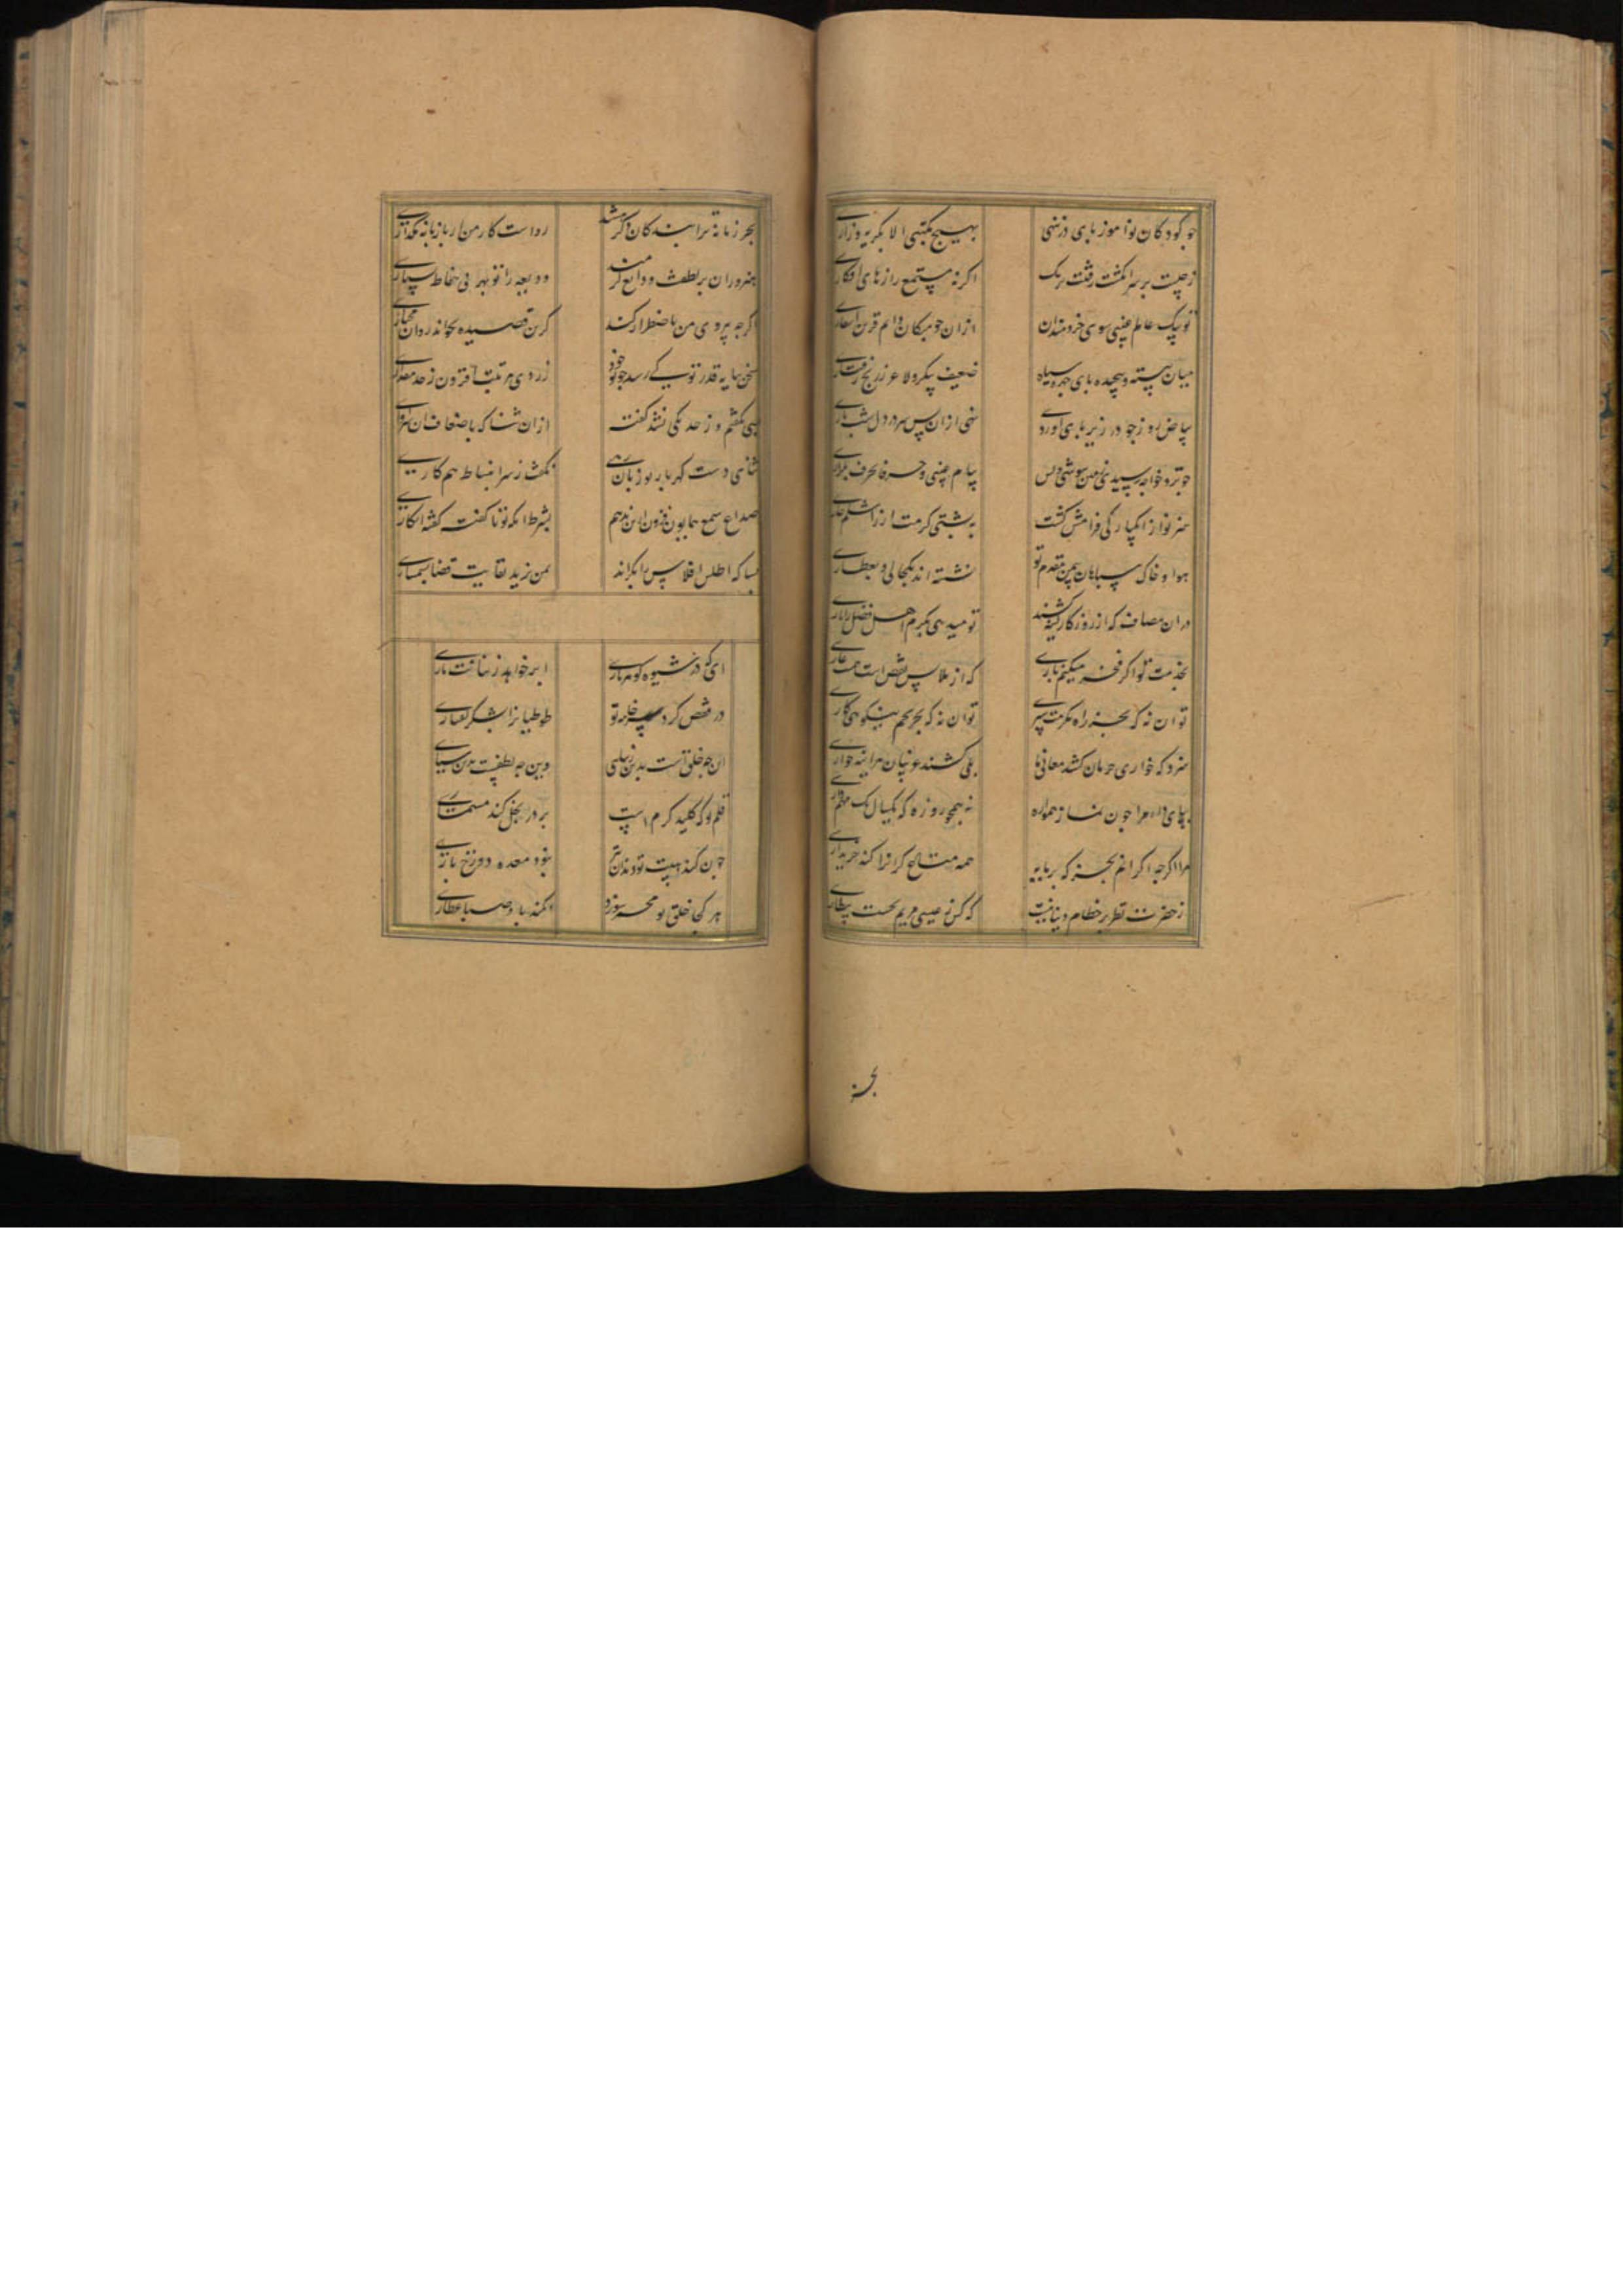 چو کودکان نوآموز پای در ننهی بهیچ مکتبی الا بکریه و زاری
ز چیست بر سر انکشت رفتنت بریک اکر نه مستمع رازهای افکاری
تو پیک عالم غیبی سوی خردمندان از ان چو میکان دایم قرین اسفاری
میان ببسته و پیچیده پای جمره سیاه ضعیف پیکر و لاغر ز رنج رفتاری
بیاض روز چو در زیر پای آوردی نهی از ان پس سر در دل شب تاری
چو نزد خواجه رسیدی زمین ببوسی و بس پیام غیبی و حرفا بحرف بگزاری
هنر نواز ز یکبارکی فرامش کشت به پشتی کرمت از زر استظهاری
هوا و خاک سپاهان بیمن مقدم تو نشسته اند بکحالی و بعطاری
در ان مصاف که از روزکار کینه کشند تو میدهی بکرم اهل فضل را یاری
بخدمت تو اکر فخر میکنم باری که از ملابس نقص است همت عاری
توان نه که بجز راه مکرمت سپری توان نه که بجز تخم نیکوی کاری
سزد که خواری حرمان کشد معانی ما بلی کشند غریبان هراینه خواری
بپای دار مرا چون نماز همواره نه همچو روزه که یکسال یک مهم داری
مرا اکرچه اکر انم بجز که بر پایه همه متاع کرانرا کند خریداری
ز حضرتت نظر بر حطام دنیا نیست که کس نه عیسی مریم بجست بیطاری
بجز
بجز زمانه ترا بندکان اکر باشند رواست کار من ار با زمانه نکذاری
هنروران بر لطفت ودایع کرمند ودیعه را تو بهر بی حفاظ نسپاری
اکرچه پیروی من باضطرار کند کز این قصیده بخواند روان مختاری
سخن بپایه قدر تو کی رسد چو تو خود ز روی مرتبت افزون ز حد مقداری
بسی بکفتم و از صد یکی نشد کفته از ان ثنا که باضعاف ان سزاواری
ثنای دست کهربار تو زبان رهی بکفت ز سر انبساط هم کاری
صداع سمع همایون فزون ازین ندهم بشرط انکه تو ناکفته کفته انکاری
بسا که اطلس افلاس را بکراند بمن یزید بقایت قضا بسمساری
ای که در شیوه کوهرباری ابر خواهد ز بنانت یاری
در قفص کرد سر خامه تو طوطیانرا بشکر کفتاری
ان چو خلق است بدین زیبایی وین چه لطفست بدین بسیاری
قلم تو که کلید کرم است بر در بخل کند مسماری
چون کند هیبت تو دندان تیز بنود معده دوزخ ناری
هر کجا خلق تو مجمر سوزد نکند باد صبا عطاری